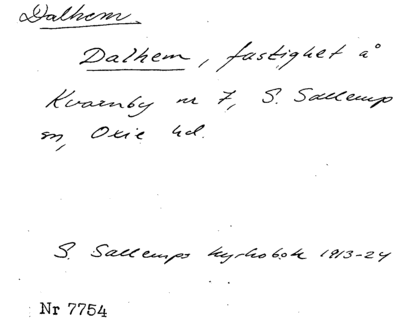 Dalhem.
Dalhem, fastighet å
Kvarnby nr 7, S. Sallerup
sn, Oxie hd.
S. Sallerups kyrkobok 1913-24
Nr 7754